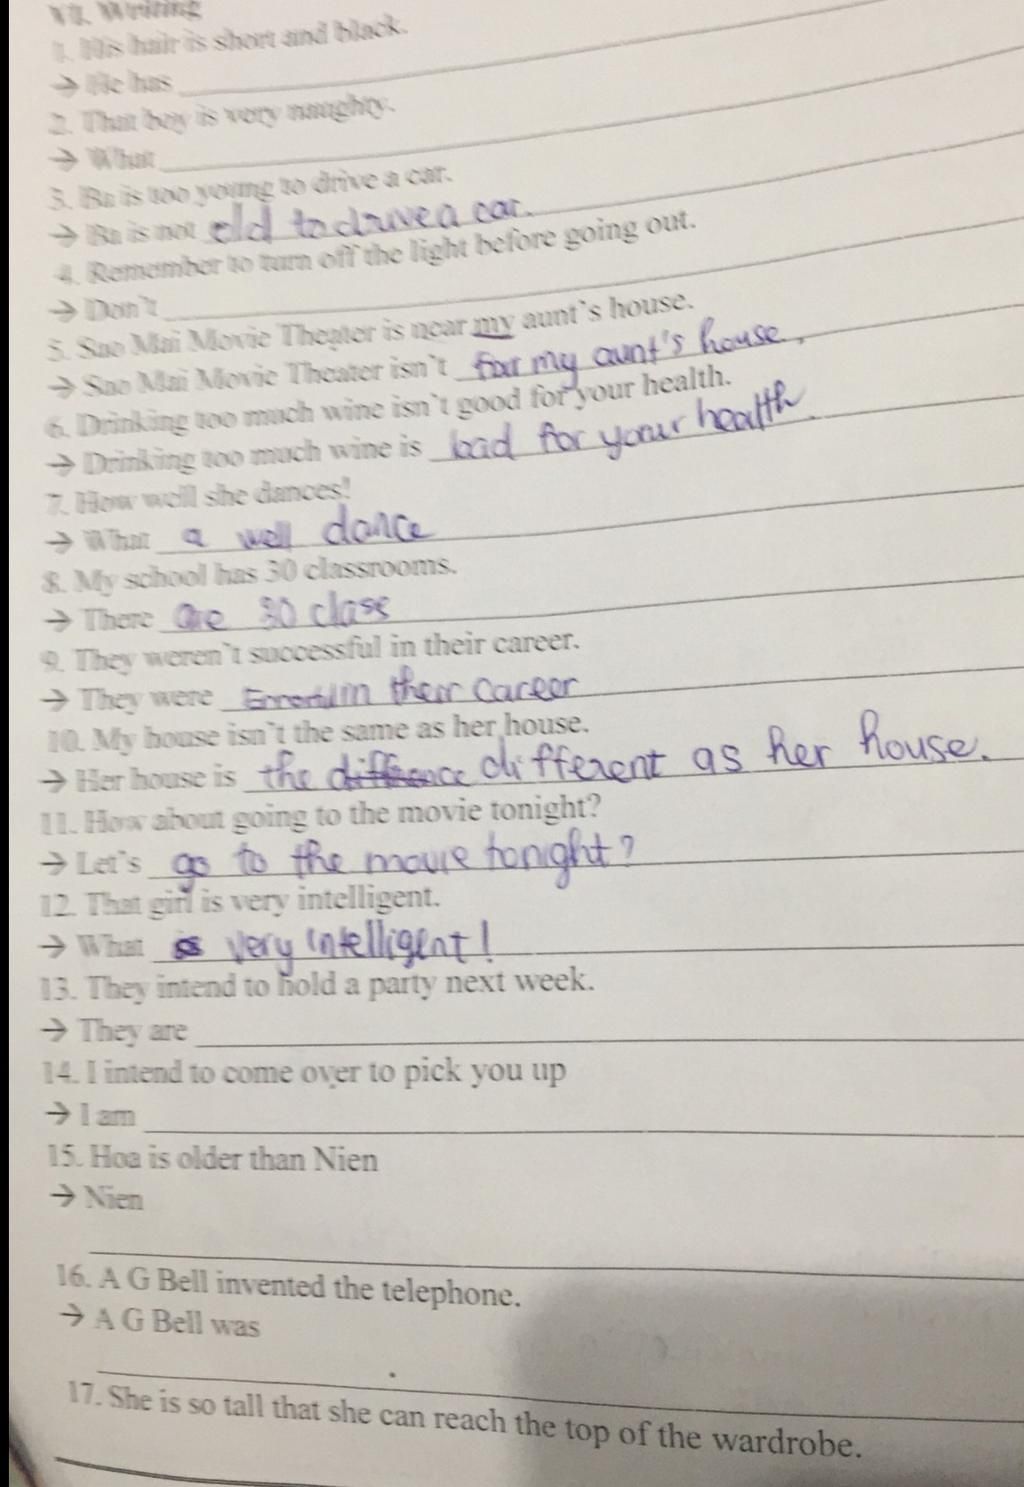 VII. Writing
1. His hair is short and black.
→ He has
2. That boy is very naughty.
→ What
3. Ba is too young to drive a car.
→ Ba is not old to drive a car.
4. Remember to turn off the light before going out.
→ Don't
5. Sao Mai Movie Theater is near my aunt's house.
→ Sao Mai Movie Theater isn't far my aunt's house.
6. Drinking too much wine isn't good for your health.
→ Drinking too much wine is bad for your health.
7. How well she dances!
→ What a well dance
8. My school has 30 classrooms.
→ There are 30 class
9. They weren't successful in their career.
→ They were in their career
10. My house isn't the same as her house.
→ Her house is the different as her house.
11. How about going to the movie tonight?
→ Let's go to the movie tonight?
12. That girl is very intelligent.
→ What very intelligent!
13. They intend to hold a party next week.
→ They are
14. I intend to come over to pick you up
→ I am
15. Hoa is older than Nien
→ Nien
16. A G Bell invented the telephone.
→ A G Bell was
17. She is so tall that she can reach the top of the wardrobe.